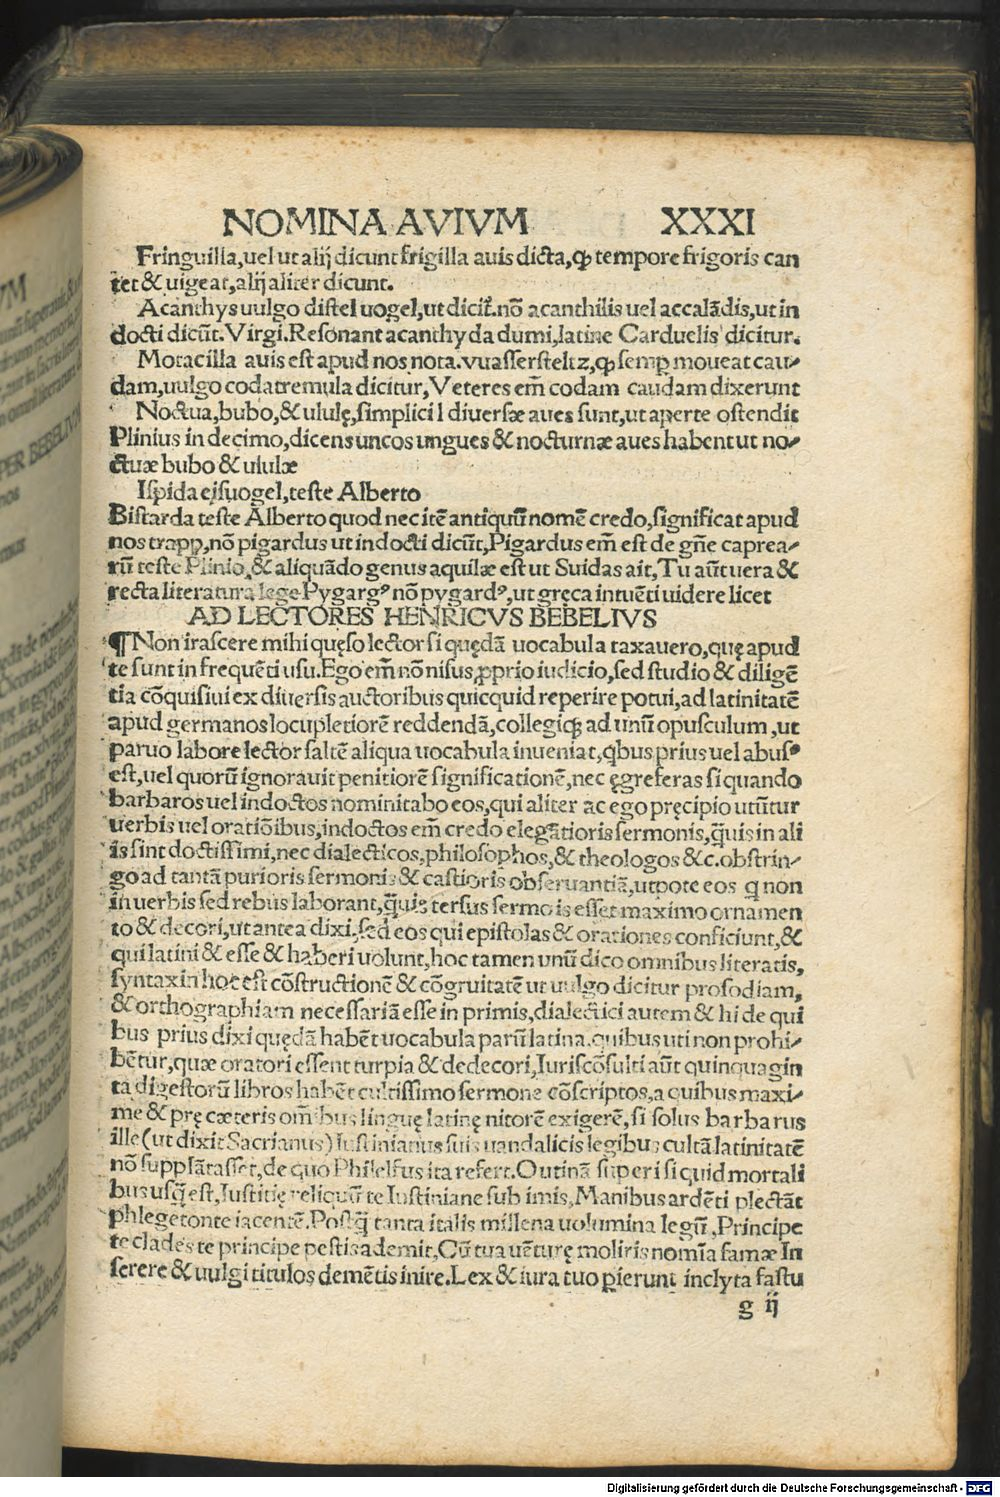 NOMINA AVIVM XXXI
Fringuilla,uel ut alij dicunt frigilla auis dicta,ꝙ tempore frigoris can
tet & uigeat,alij aliter dicunt.
Acanthys uulgo distel uogel,ut dicit̃.nō acanthilis uel accalādis,ut in
docti dicūt.Virgi.Resonant acanthyda dumi,latine Carduelis dicitur.
Motacilla auis est apud nos nota.vuassersteltz,ꝙ semꝑ moueat cau⸗
dam,uulgo codatremula dicitur,Veteres em̄ codam caudam dixerunt
Noctua,bubo,& ululę,simplici l diuersæ aues sunt,ut aperte ostendit
Plinius in decimo,dicens uncos ungues & nocturnæ aues habent ut no⸗
ctuæ bubo & ululæ
Ispida eisuogel,teste Alberto
Bistarda teste Alberto quod nec itē antiquū nomē credo,significat apud
nos trapp,nō pigardus ut indocti dicūt,Pigardus em̄ est de gn̄e caprea⸗
rū teste Plinio,& aliquādo genus aquilæ est ut Suidas ait,Tu aūt uera &
recta literatura lege Pygargꝰ nō pygardꝰ,ut gręca intuēti uidere licet
AD LECTORES HENRICVS BEBELIVS
¶ Non irascere mihi quęso lector si quędā uocabula taxauero,quę apud
te sunt in frequēti usu.Ego em̄ nō nisus ꝓprio iudicio,sed studio & diligē
tia cōquisiui ex diuersis auctoribus quicquid reperire potui,ad latinitatē
apud germanos locupletiorē reddendā,collegiqꝫ ad unū opusculum,ut
paruo labore lector saltē aliqua uocabula inueniat,qbus prius uel abusꝰ
est,uel quorū ignorauit penitiorē significationē,nec ęgre feras si quando
barbaros uel indoctos nominitabo eos,qui aliter ac ego pręcipio utūtur
uerbis uel oratiōibus,indoctos em̄ credo elegātioris sermonis,q̄uis in ali
is sint doctissimi,nec dialecticos,philosophos,& theologos &c.obstrin⸗
go ad tantā purioris sermonis & castioris obseruantiā,utpote eos q non
in uerbis sed rebus laborant,q̄uis tersus sermo is esset maximo ornamen
to & decori,ut antea dixi.sed eos qui epistolas & orationes conficiunt,&
qui latini & esse & haberi uolunt,hoc tamen unū dico omnibus literatis,
syntaxin hoc est cōstructionē & cōgruitatē ut uulgo dicitur prosodiam,
& orthographiam necessariā esse in primis,dialectici autem & hi de qui
bus prius dixi quędā habēt uocabula parū latina.quibus uti non prohi⸗
bētur,quæ oratori essent turpia & dedecori,Iuriscōsulti aūt quinquagin
ta digestorū libros habēt cultissimo sermone cōscriptos,a quibus maxi⸗
me & prę cæteris omnibus linguę latinę nitorē exigerē,si solus barbarus
ille(ut dixit Sacrianus)Iustinianus suis uandalicis legibus cultā latinitatē
nō supplātasset,de quo Philelfus ita refert.O utinā superi si quid mortali
bus usq̄ est,Iustitię reliquū te Iustiniane sub imis,Manibus ardēti plectāt
phlegetonte iacentē.Postq̄ tanta italis millena uolumina legū,Principe
te clades te principe pestis ademit,Cū tua uēturę moliris nomīa famæ In
serere & uulgi titulos demētis inire.Lex & iura tuo ꝑierunt inclyta fastu
g ij
Digitalisierung gefördert durch die Deutsche Forschungsgemeinschaft - DFG